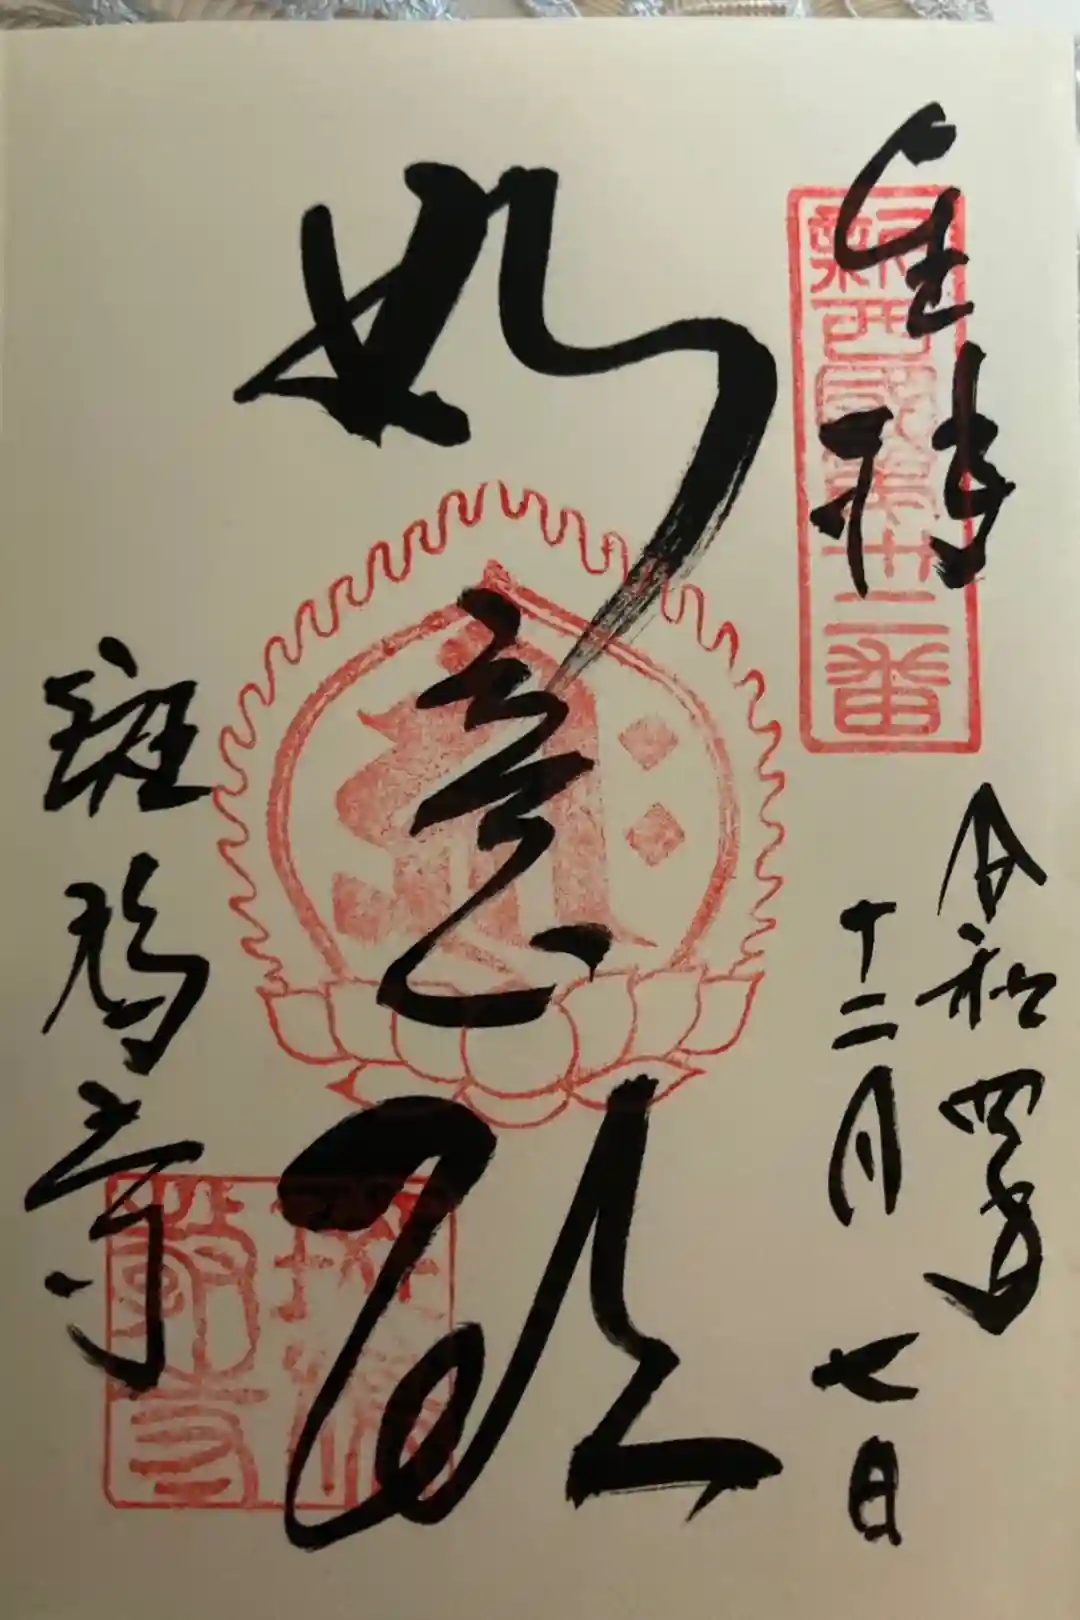 奉拝
新西国第卅二番
令和四年
十二月七日
如意殿
斑鳩寺